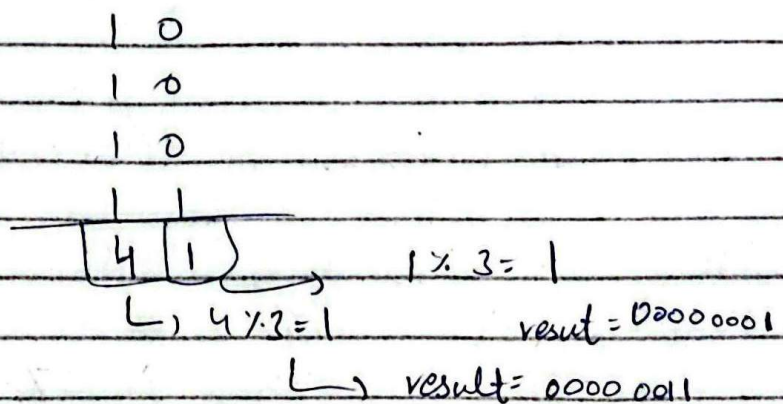 1 0
1 0
1 0
1 1
4 1
1 % 3 = 1
4 % 3 = 1
resut = 00000001
result = 0000 0011